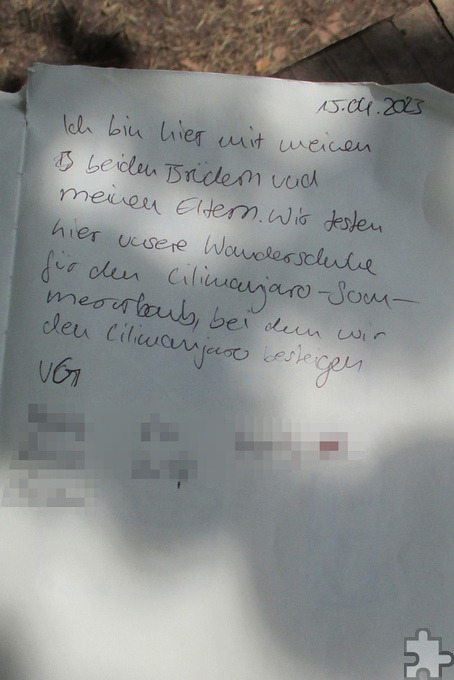 15.04.2023
Ich bin hier mit meinen
beiden Brüdern und
meinen Eltern. Wir testen
hier unsere Wanderschuhe
für den Cilimanjaro-Som-
merurlaub, bei dem wir
den Cilimanjaro besteigen
VG